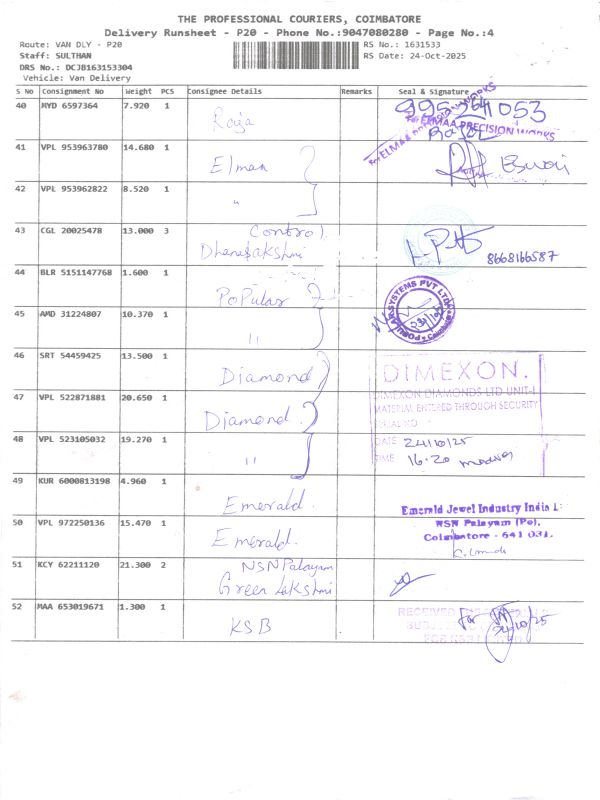 THE PROFESSIONAL COURIERS, COIMBATORE
Delivery Runsheet - P20 - Phone No.:9047080280 - Page No.:4
Route: VAN DLY - P20 RS No.: 1631533
Staff: SULTHAN RS Date: 24-Oct-2025
DRS No.: DCJB163153304
Vehicle: Van Delivery
S No Consignment No Weight PCS Consignee Details Remarks Seal & Signature
40 MYD 6597364 7.920 1 Roja
ELMAA PRECISION WORKS
For ELMAA PRECISION WORKS
41 VPL 953963780 14.680 1 Elmaa
42 VPL 953962822 8.520 1 "
43 CGL 20025478 13.000 3 Control
Dhanalakshmi 8668166587
44 BLR 5151147768 1.600 1 PoPular
45 AMD 31224807 10.370 1 "
46 SRT 54459425 13.500 1 Diamond
DIMEXON.
DIMEXON DIAMONDS LTD UNIT-I
47 VPL 522871881 20.650 1 Diamond
MATERIAL ENTERED THROUGH SECURITY
SERIAL NO
48 VPL 523105032 19.270 1 "
DATE 24/10/25
TIME 16.20
49 KUR 6000813198 4.960 1 Emerald.
Emerald Jewel Industry India L
NSN Palayam (Po),
50 VPL 972250136 15.470 1 Emerald.
Coimbatore - 641 031.
51 KCY 62211120 21.300 2 NSN Palayam
Green Lakshmi
52 MAA 653019671 1.300 1 KSB
RECEIVED
24/10/25